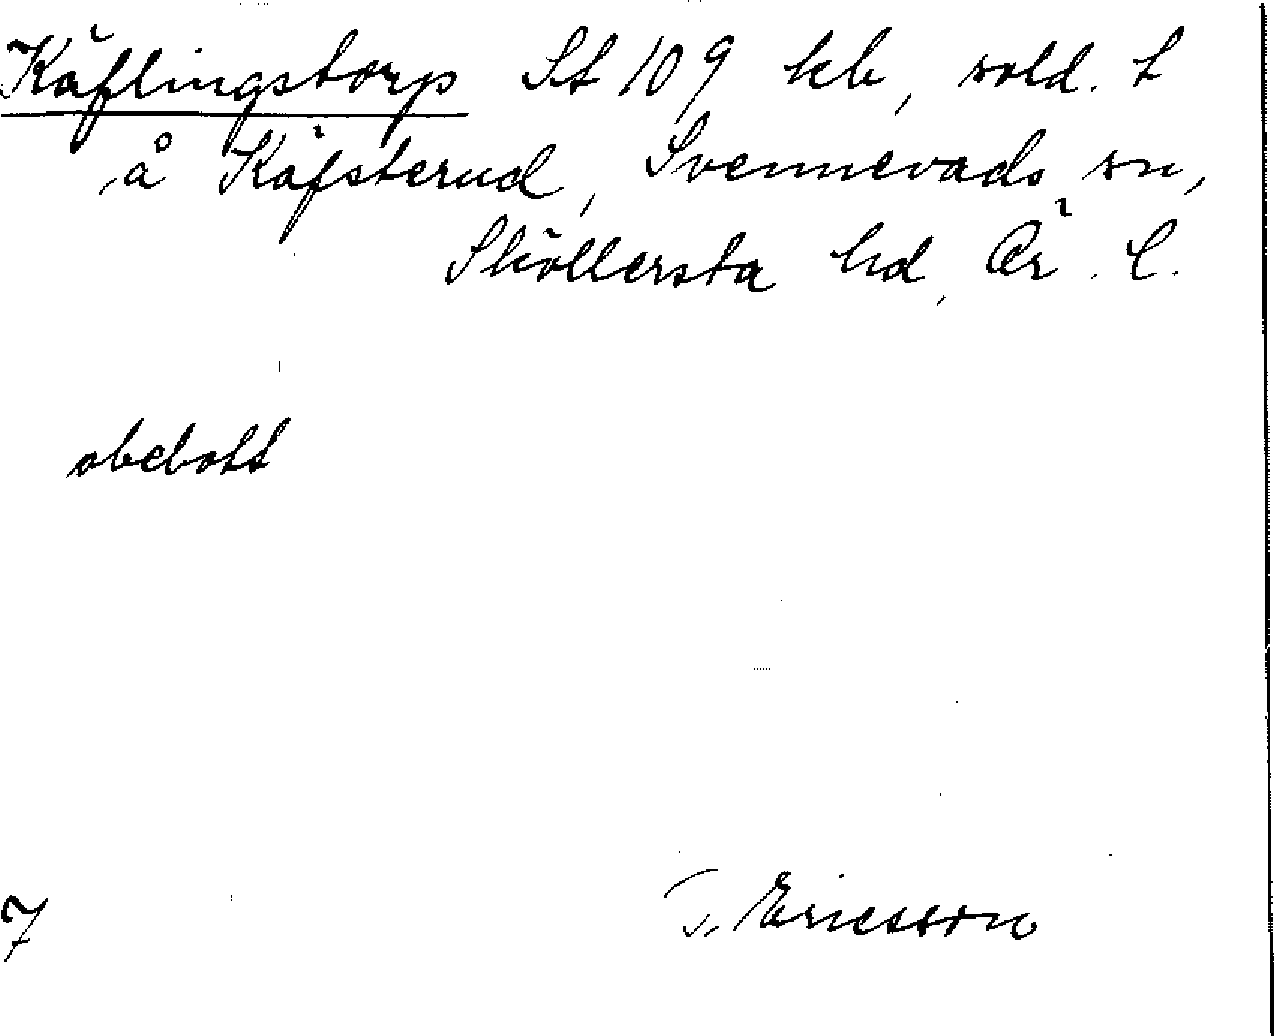 Käflingstorp St 109 kb, sold. t
å Käfsterud, Svennevads sn,
Sköllersta hd, Ör. l.
obebott
7
T. Ericsson